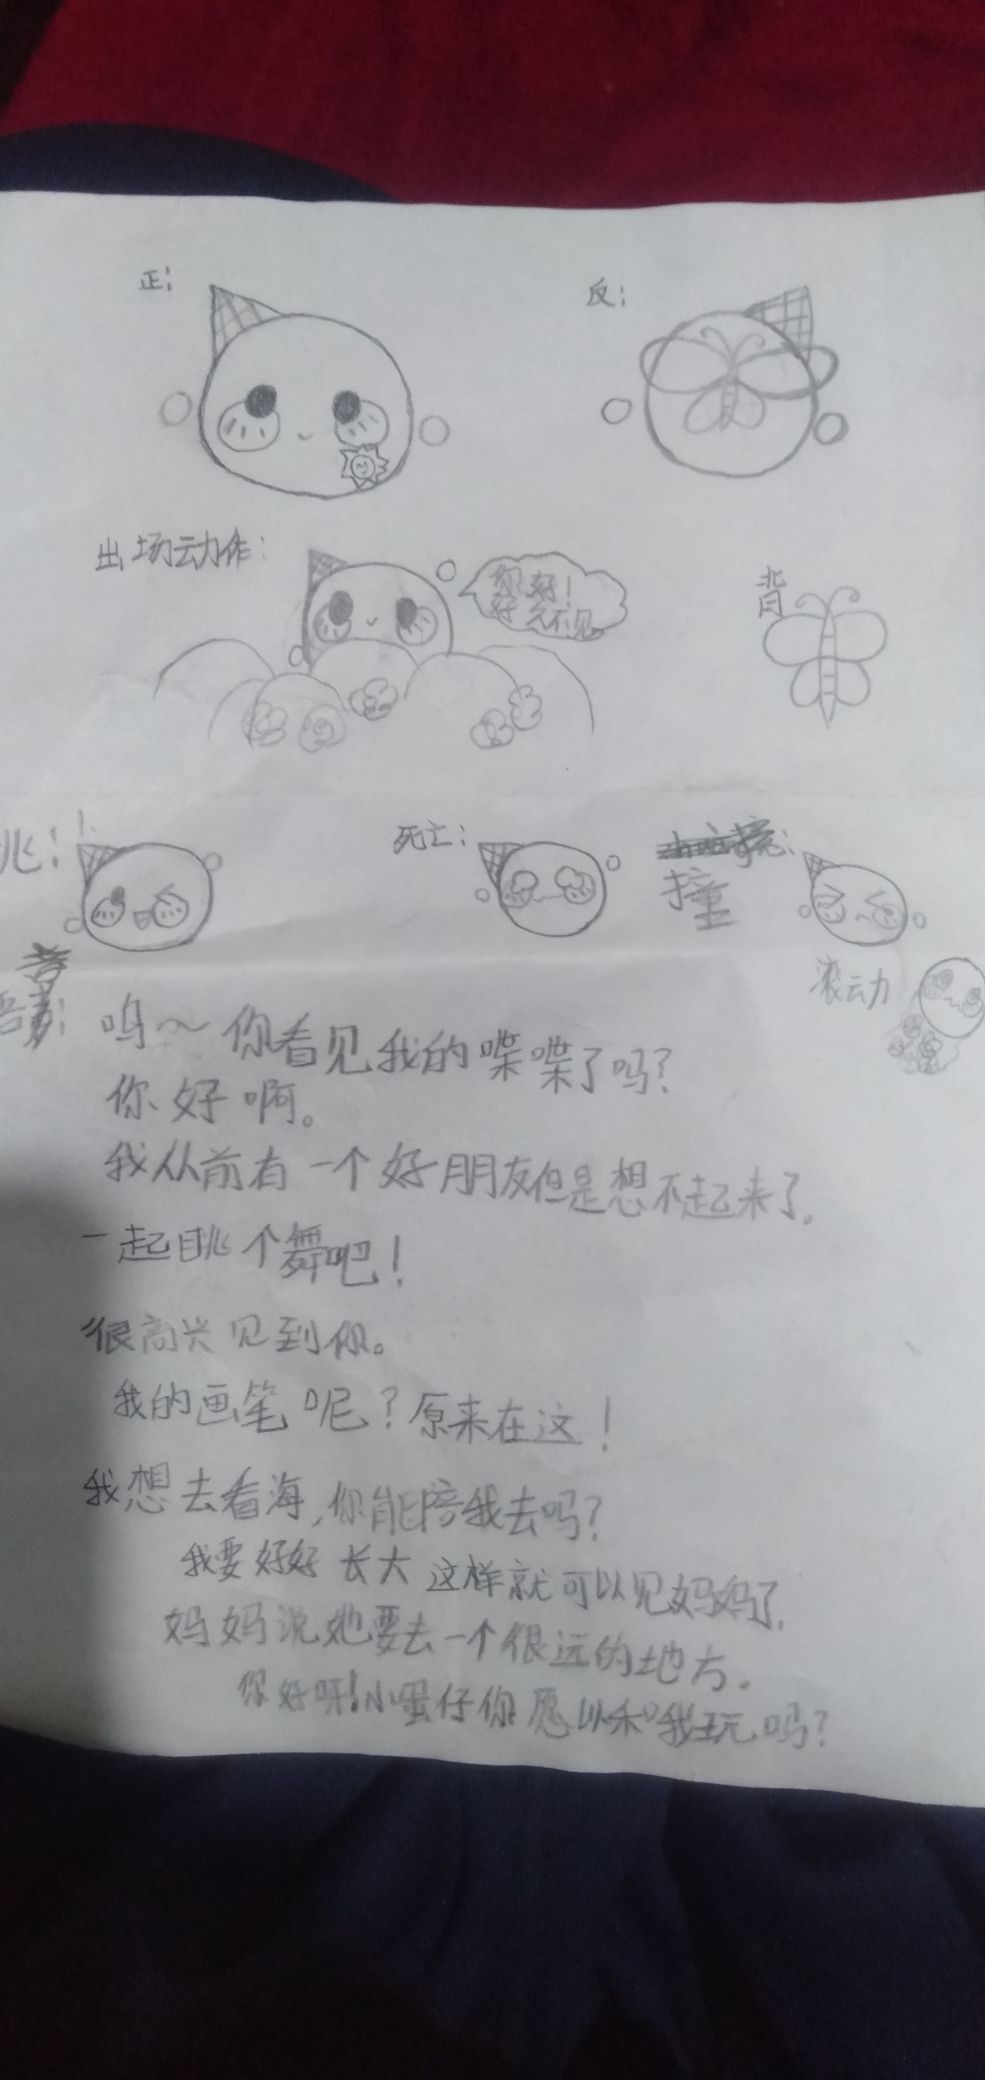 正：
反：
出场动作：
你好！
好久不见
背
兆：
死亡：
撞
滚动
呜～你看见我的喋喋了吗？
你好啊。
我从前有一个好朋友但是想不起来了。
一起眺个舞吧！
很高兴见到你。
我的画笔呢？原来在这！
我想去看海，你能陪我去吗？
我要好好长大这样就可以见妈妈了。
妈妈说她要去一个很远的地方。
你好呀！小蛋仔你愿以和我玩吗？